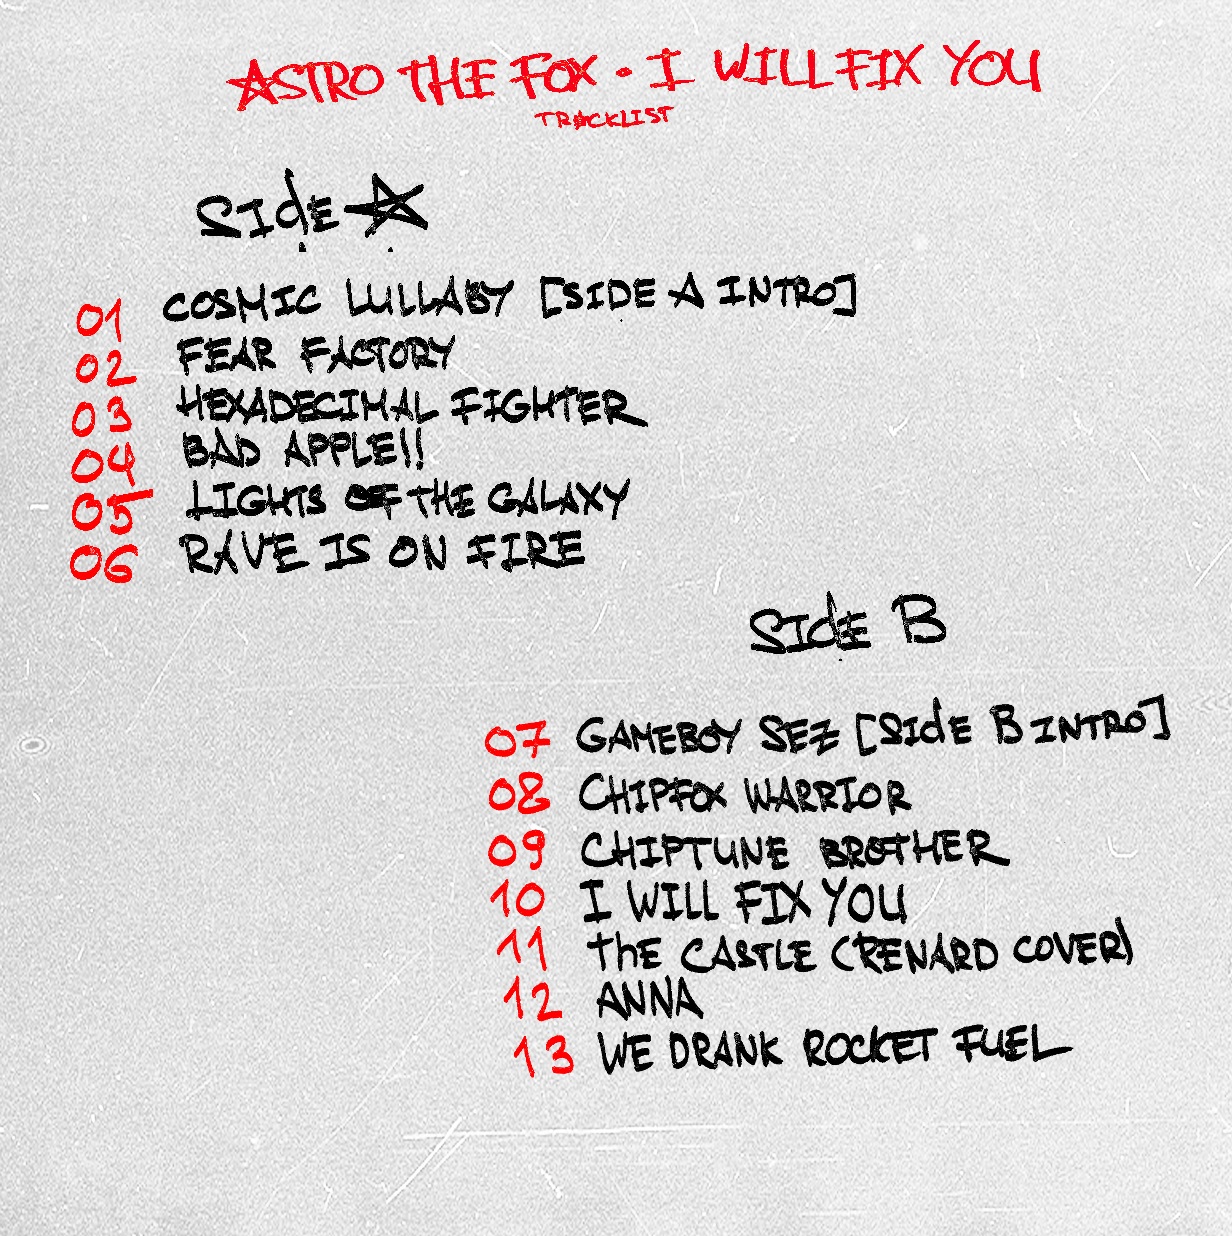 ASTRO THE FOX · I WILL FIX YOU
TRACKLIST
SIdE A
01 COSMIC LULLABY [SIDE A INTRO]
02 FEAR FACTORY
03 HEXADECIMAL FIGHTER
04 BAD APPLE!!
05 LIGHTS OF THE GALAXY
06 RAVE IS ON FIRE
SIdE B
07 GAMEBOY SEZ [SIdE B INTRO]
08 CHIPFOX WARRIOR
09 CHIPTUNE BROTHER
10 I WILL FIX YOU
11 thE CASTLE (RENARD COVER)
12 ANNA
13 WE DRANK ROCKET FUEL